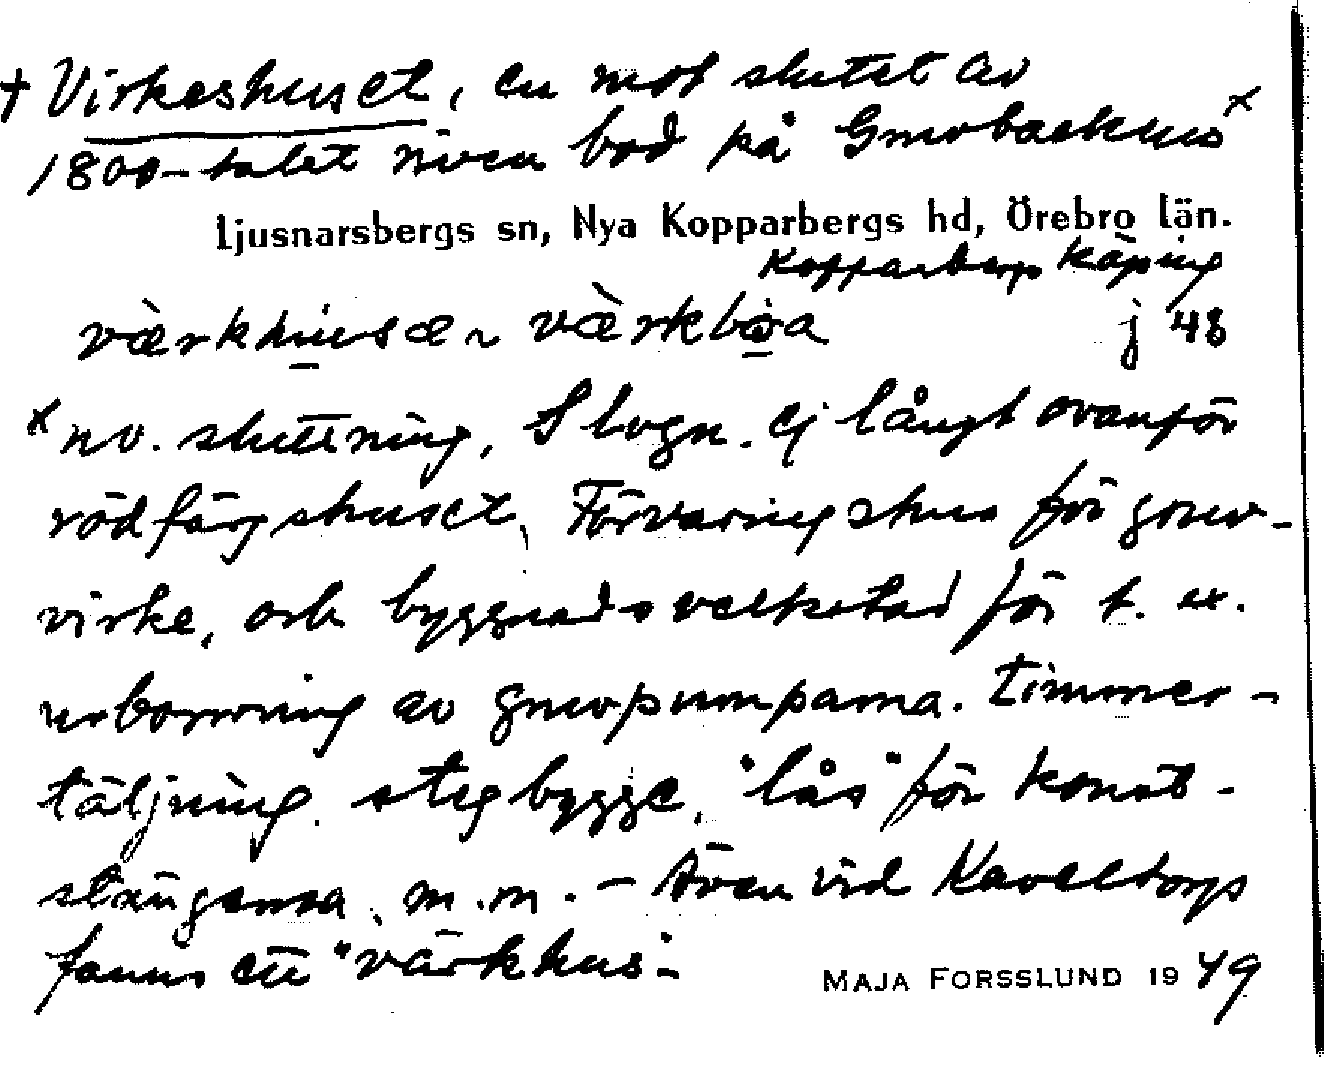 + Virkeshuset, en mot slutet av
1800-talet riven bod på Gruvbackens x
Ljusnarsbergs sn, Nya Kopparbergs hd, Örebro län.
Kopparbergs köping
værkhusæ værkboa
j 48
x nv. sluttning, S logn. ej långt ovanför
rödfärgshuset. Förvaringshus för gruv-
virke, och byggnadsverkstad för t. ex.
urborrning av gruvpumparna. Timmer-
täljning. stegbygge, "lås" för konst-
stängerna, m.m. - Även vid Kaveltorps
fanns ett "värkhus".-
MAJA FORSSLUND 1949